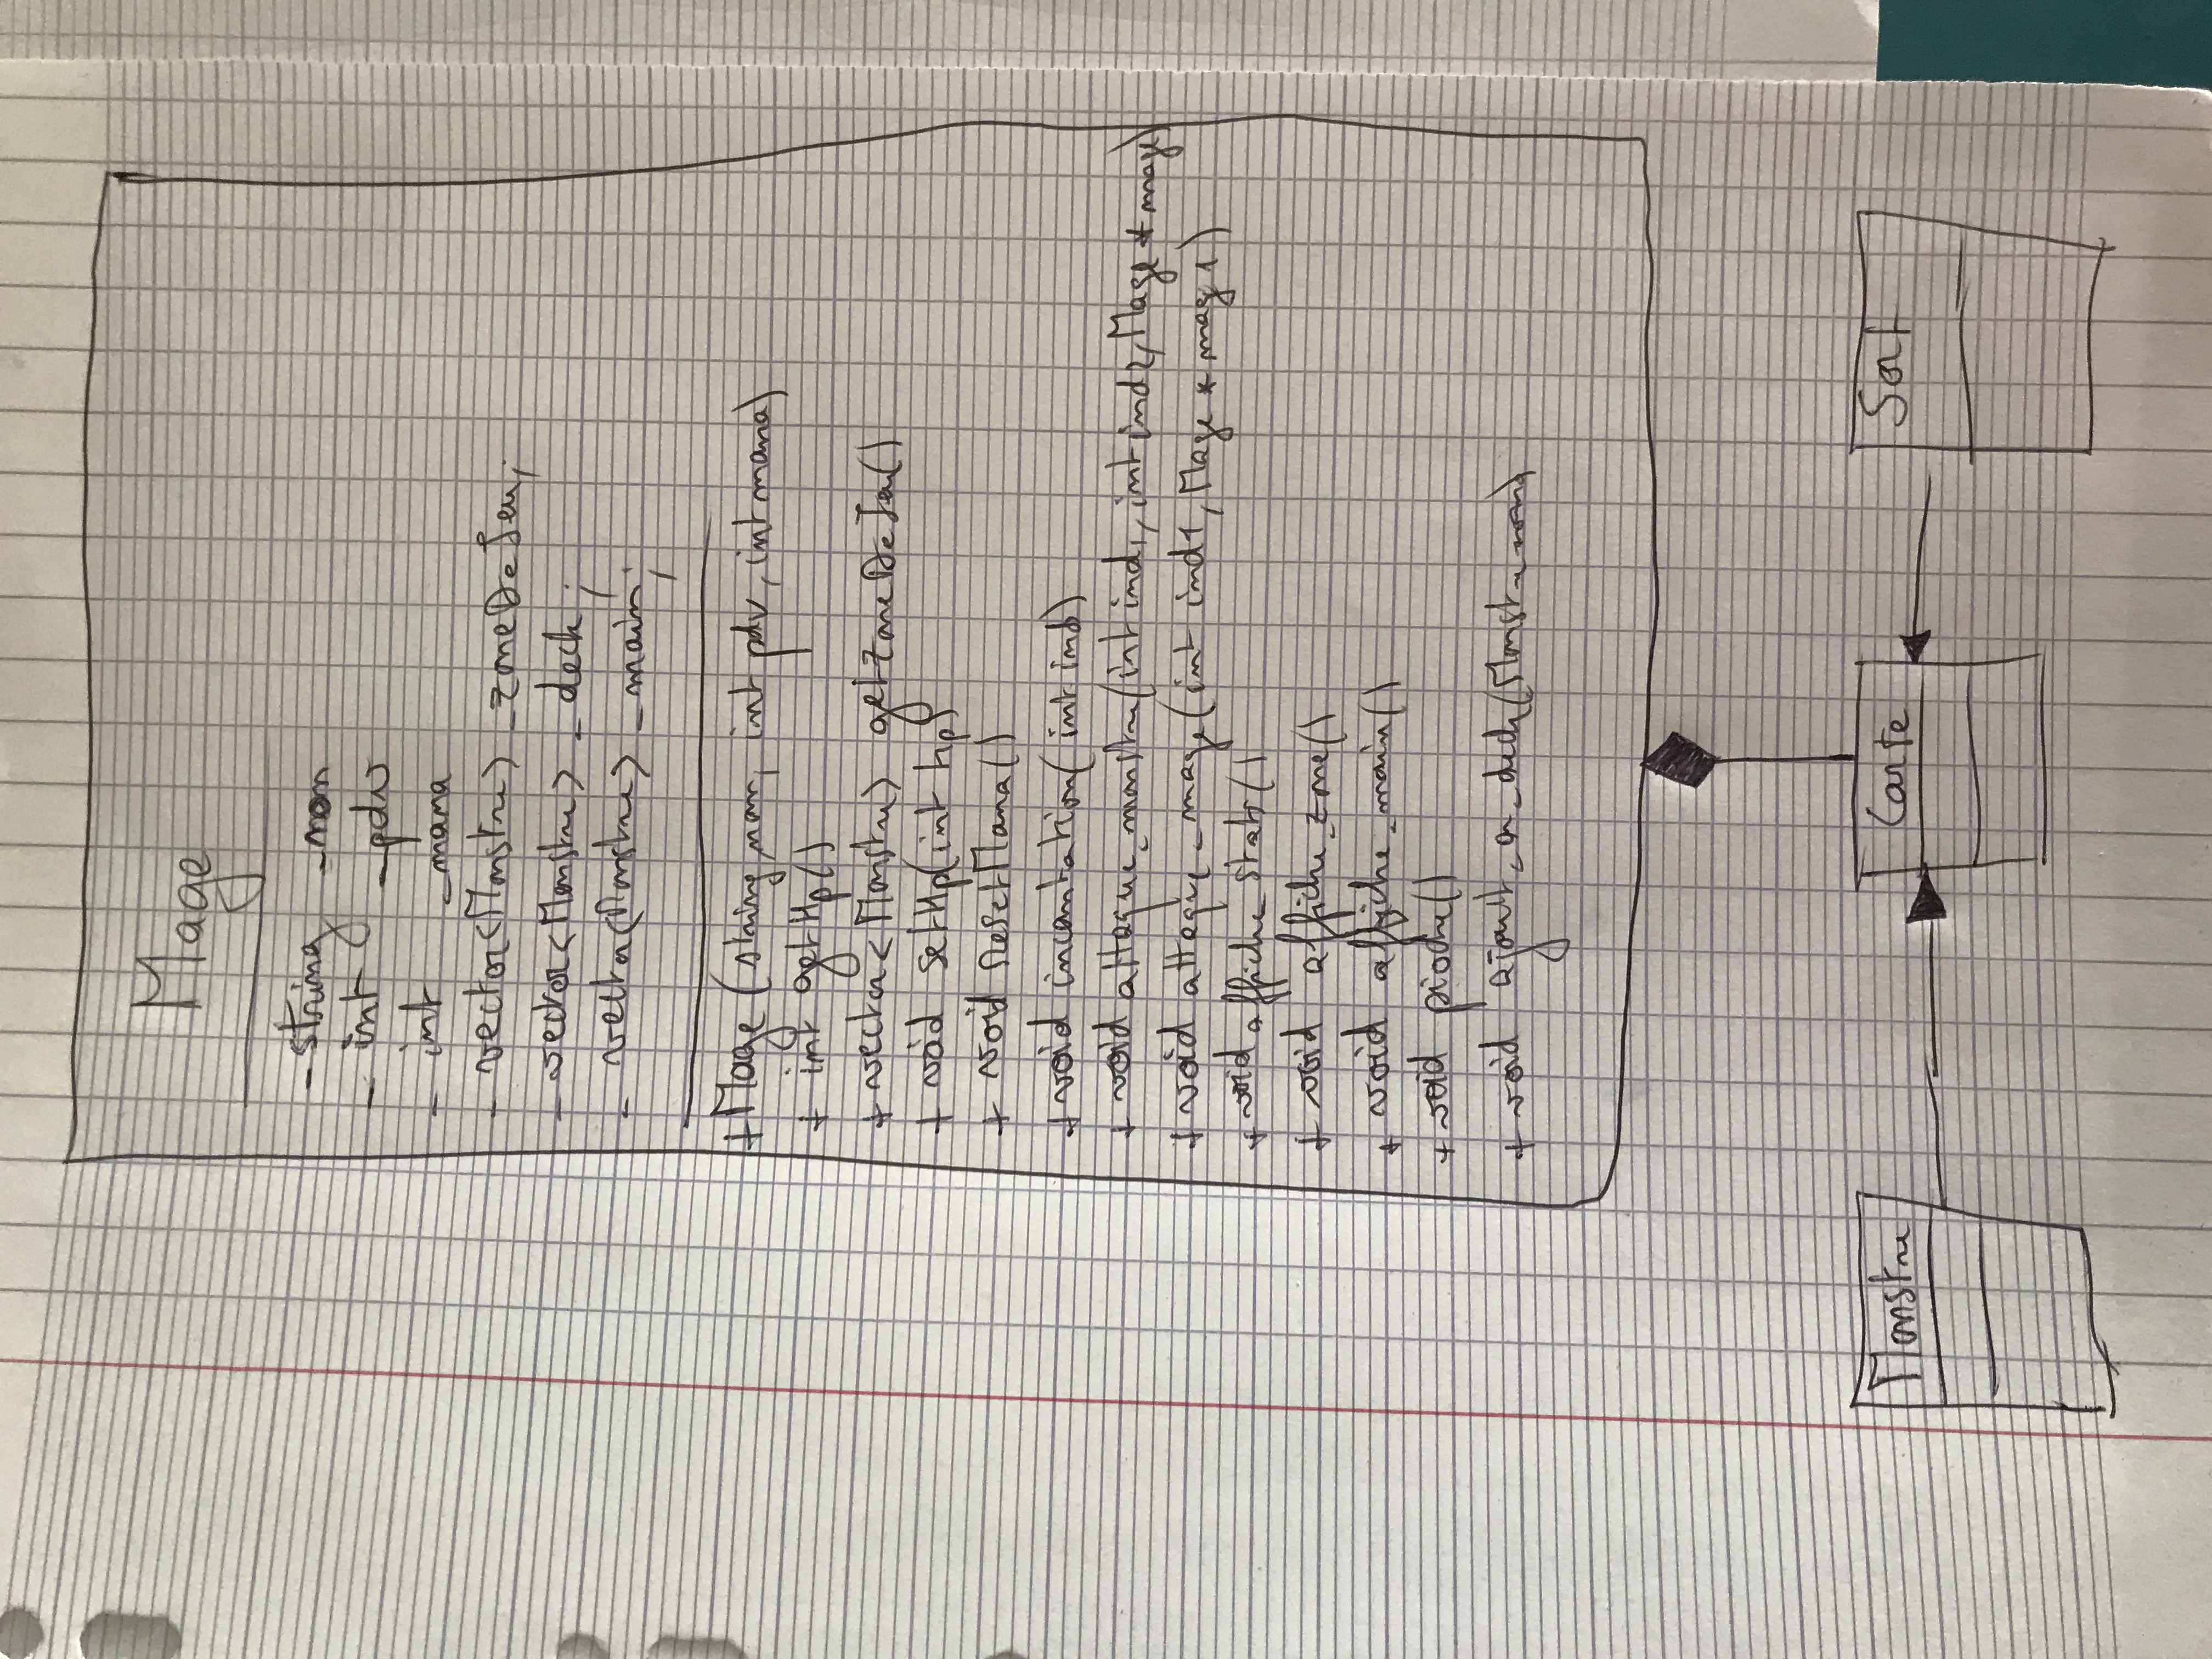 Mage
- string _nom
- int _pdv
- int _mana
- vector<Monstre> _zoneDeJeu;
- vector<Monstre> _deck;
- vector<Monstre> _main;
+ Mage (string nom, int pdv, int mana)
+ int getHp()
+ vector<Monstre> getZoneDeJeu()
+ void setHp(int hp)
+ void resetMana()
+ void incantation(int ind)
+ void attaque_monstre(int ind1, int ind2, Mage * mage)
+ void attaque_mage(int ind1, Mage * mag1)
+ void affiche_stats()
+ void affiche_zone()
+ void affiche_main()
+ void pioche()
+ void ajout_a_deck(Monstre
Monstre Carte Sort